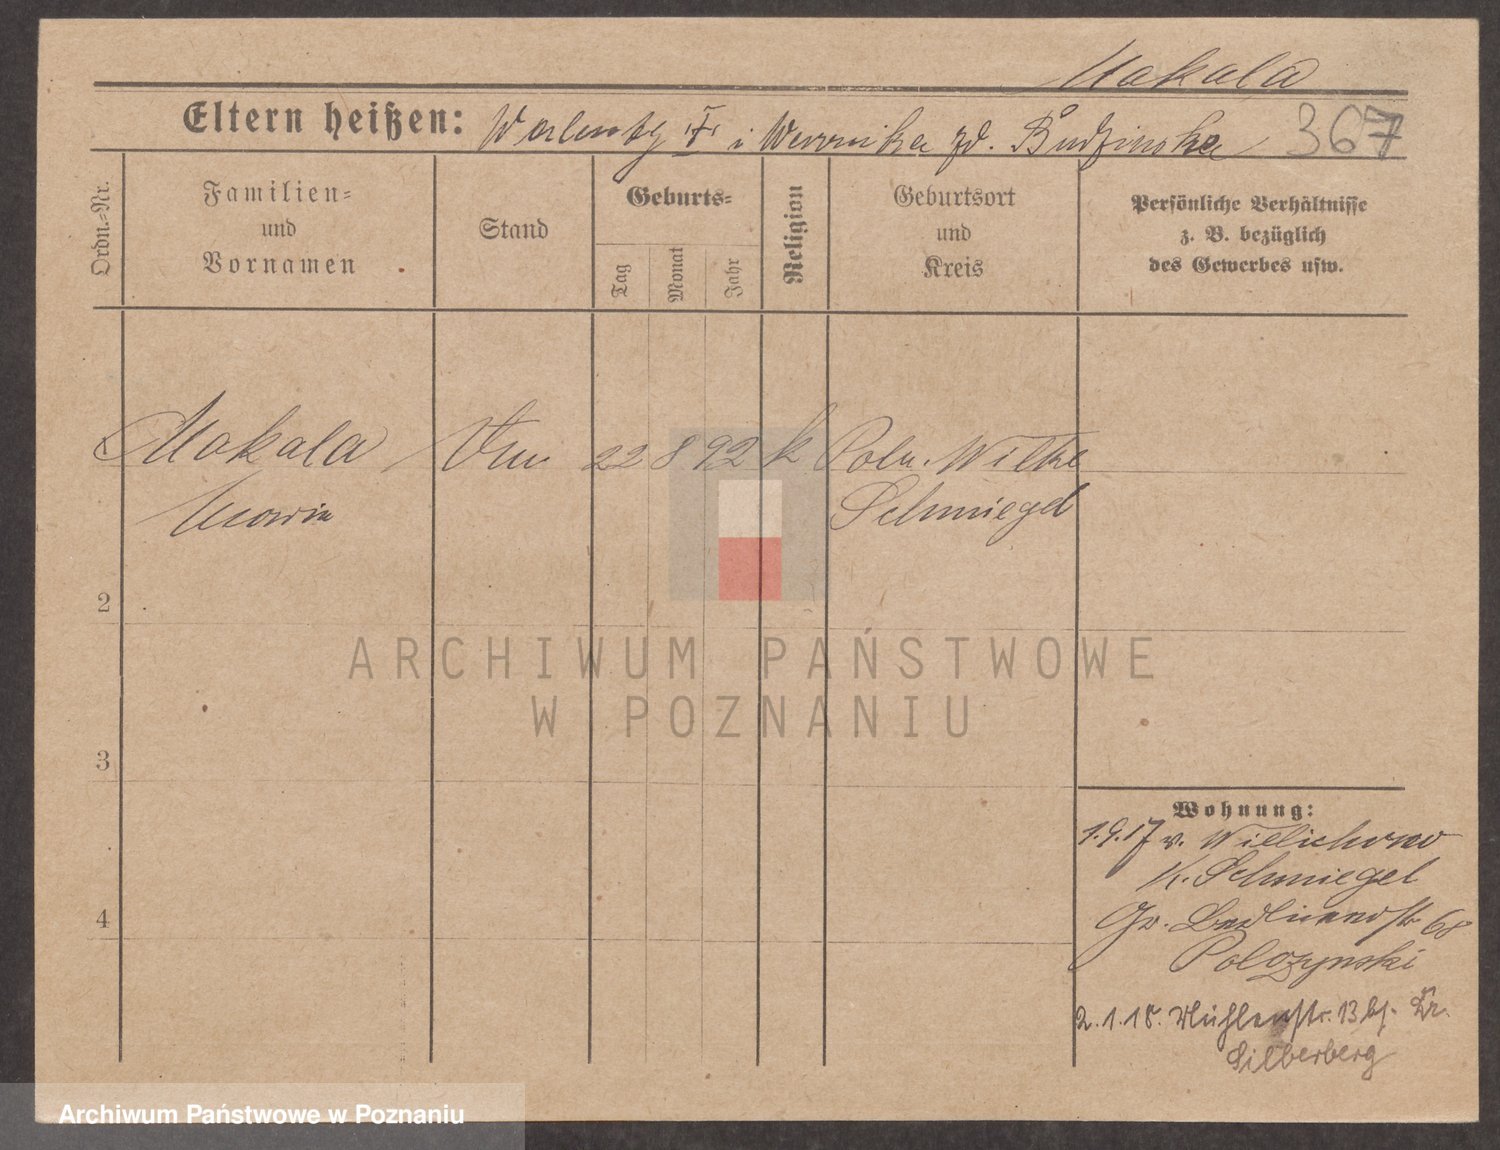 Makala
Eltern heißen: Walenty i Weronika zd. Budzinska 367
Ordn.=Nr.
Familien=
und
Vornamen
Stand
Geburts=
Tag
Monat
Jahr
Religion
Geburtsort
und
Kreis
Persönliche Verhältnisse
z. B. bezüglich
des Gewerbes usw.
Makala 22 8 92 k Poln. Wilke
Schmiegel
2
3
4
Wohnung:
1.9.17 v. Wielichowo
K. Schmiegel
Gr. 68
Polczynski
2.1.18. Mühlenstr. 13 bj. Dr.
Silberberg
ARCHIWUM PAŃSTWOWE
W POZNANIU
Archiwum Państwowe w Poznaniu